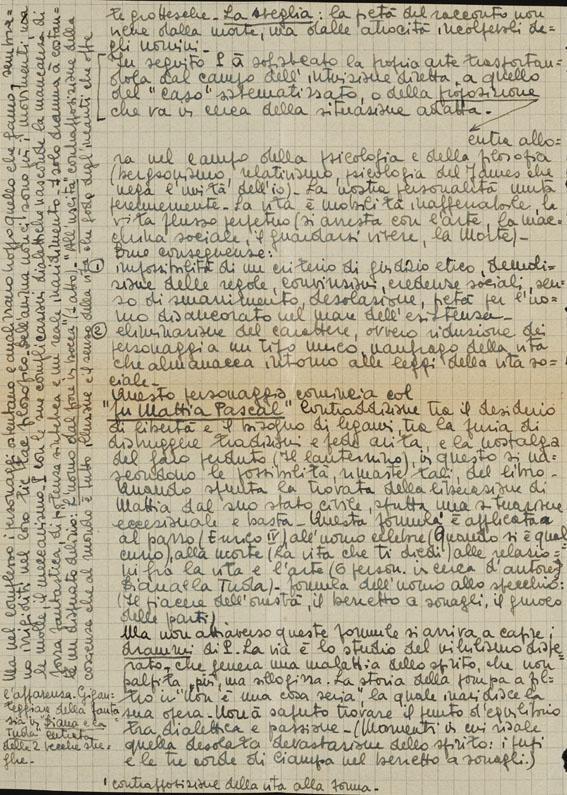 te grottesche. La sveglia: la pietà del racconto non
viene dalla morte, ma dalle atrocità incolpevoli de-
gli uomini.
In seguito P. à sofisticato la propria arte trasportan-
dola dal campo dell'intuizione diretta, a quello
del "caso" sistematizzato, o della proposizione
che va in cerca della situazione adatta.
entra allo-
ra nel campo della psicologia e della filosofia
(bergsonismo relativismo, psicologia del James che
nega l'unità dell'io). La nostra personalità muta
perennemente. La vita è mobilità inafferrabile, la
vita flusso perpetuo (si arresta con l'arte, la mac-
china sociale, il guardarsi vivere, la morte).
Due conseguenze:
① impossibilità di un criterio di giudizio etico, demoli-
zione delle regole, convinzioni, credenze sociali, sen-
so di smarrimento, desolazione, pietà per l'uo-
mo disancorato nel mare dell'esistenza.
② eliminazione del carattere, ovvero riduzione dei
personaggi a un tipo unico, naufrago della vita
che almanacca intorno alle leggi della vita so-
ciale.
Questo personaggio comincia col
"Fu Mattia Pascal" Contraddizione tra il desiderio
di libertà e il bisogno di legami, tra la furia di
distruggere tradizioni e fede avita, e la nostalgia
del faro perduto (Il lanternino), in questo si na-
scondono le possibilità, rimaste tali, del libro.
Quando spunta la trovata della liberazione di
Mattia dal suo stato civile, sfutta una situazione
eccezionale e basta. Questa formula è applicata
al pazzo (Enrico IV) all'uomo celebre (Quando si è qual
cuno), alla morte (La vita che ti diedi) alle relazio-
ni fra la vita e l'arte (6 person. in cerca d'autore,
Diana e la Tuda). formula dell'uomo allo specchio:
(Il piacere dell'onestà, il berretto a sonagli, il giuoco
delle parti)
Ma non attraverso queste formule si arriva a capire i
drammi di P. La via è lo studio del nihilismo dispe-
rato, che genera una malattia dello spirito, che non
palpita più, ma sillogizza. La storia della pompa a fil-
tro in "Non è una cosa seria", la quale inaridisce la
sua opera. Non à saputo trovare il punto d'equilibrio
tra dialettica e passione. (Momenti in cui risale
quella desolata devastazione dello spirito: i pupi
e le tre corde di Ciampa nel berretto a sonagli.)
¹ contrapposizione della vita alla forma.
Ma nel complesso i personaggi ostentano e analizzano troppo quello che fanno, sembra-
no irrigiditi nel loro tic filosofico, dell'anima non ci sono più i movimenti, ma
le molle, il meccanismo. P. con le sue complicazioni dialettiche nasconde la mancanza di
forza fantastica, di potenza sintetica e un reale inaridimento.
coscienza che al mondo è tutto illusione e il senso della vita che gode degli incanti che offre
l'apparenza. Gigan-
teggiare della fanta
sia in "Diana e la
Tuda" entrata
delle 2 vecchie stre-
ghe.